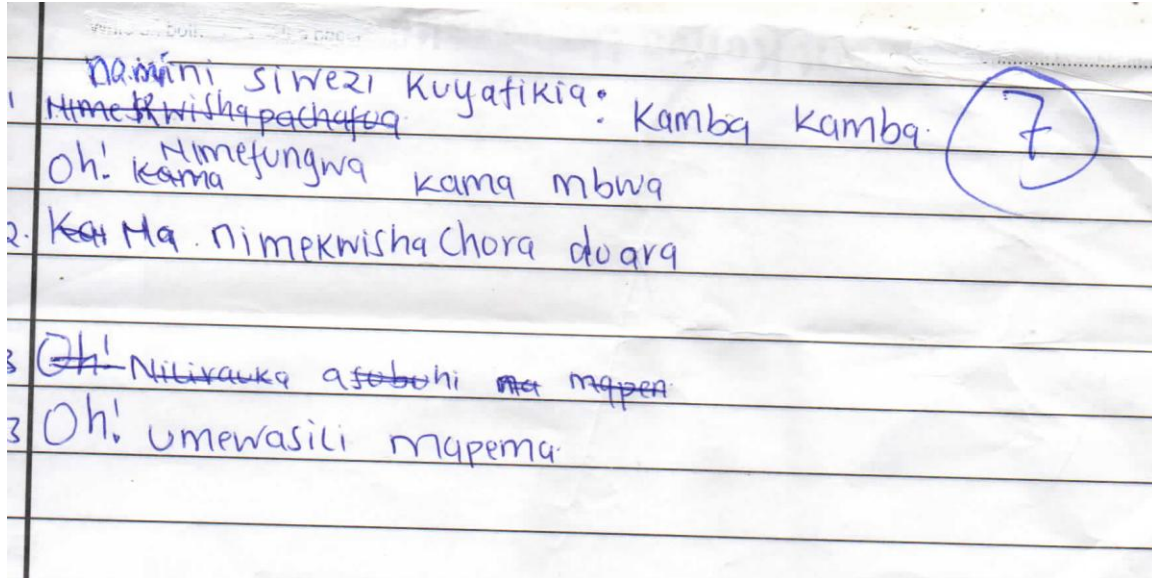 namini siwezi kuyafikia: kamba kamba. 7
1 Nimekwishapachafua
Oh! kama Nimefungwa kama mbwa
2. Kar Ha. nimekwisha chora duara
3 Oh! Nilirauka asubuhi na mapen
3 Oh! umewasili mapema.